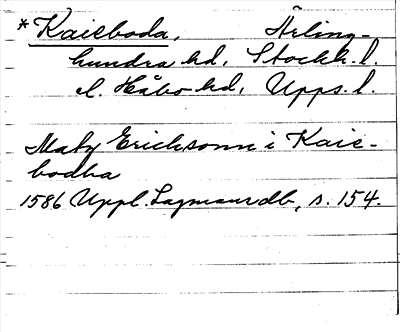 *Kaicboda, Ärling-
hundra hd, Stockh. l.
el. Håbo hd, Upps. l.
Matz Erichsonn i Kaic-
bodha
1586 Uppl. Lagmansdb, s. 154.